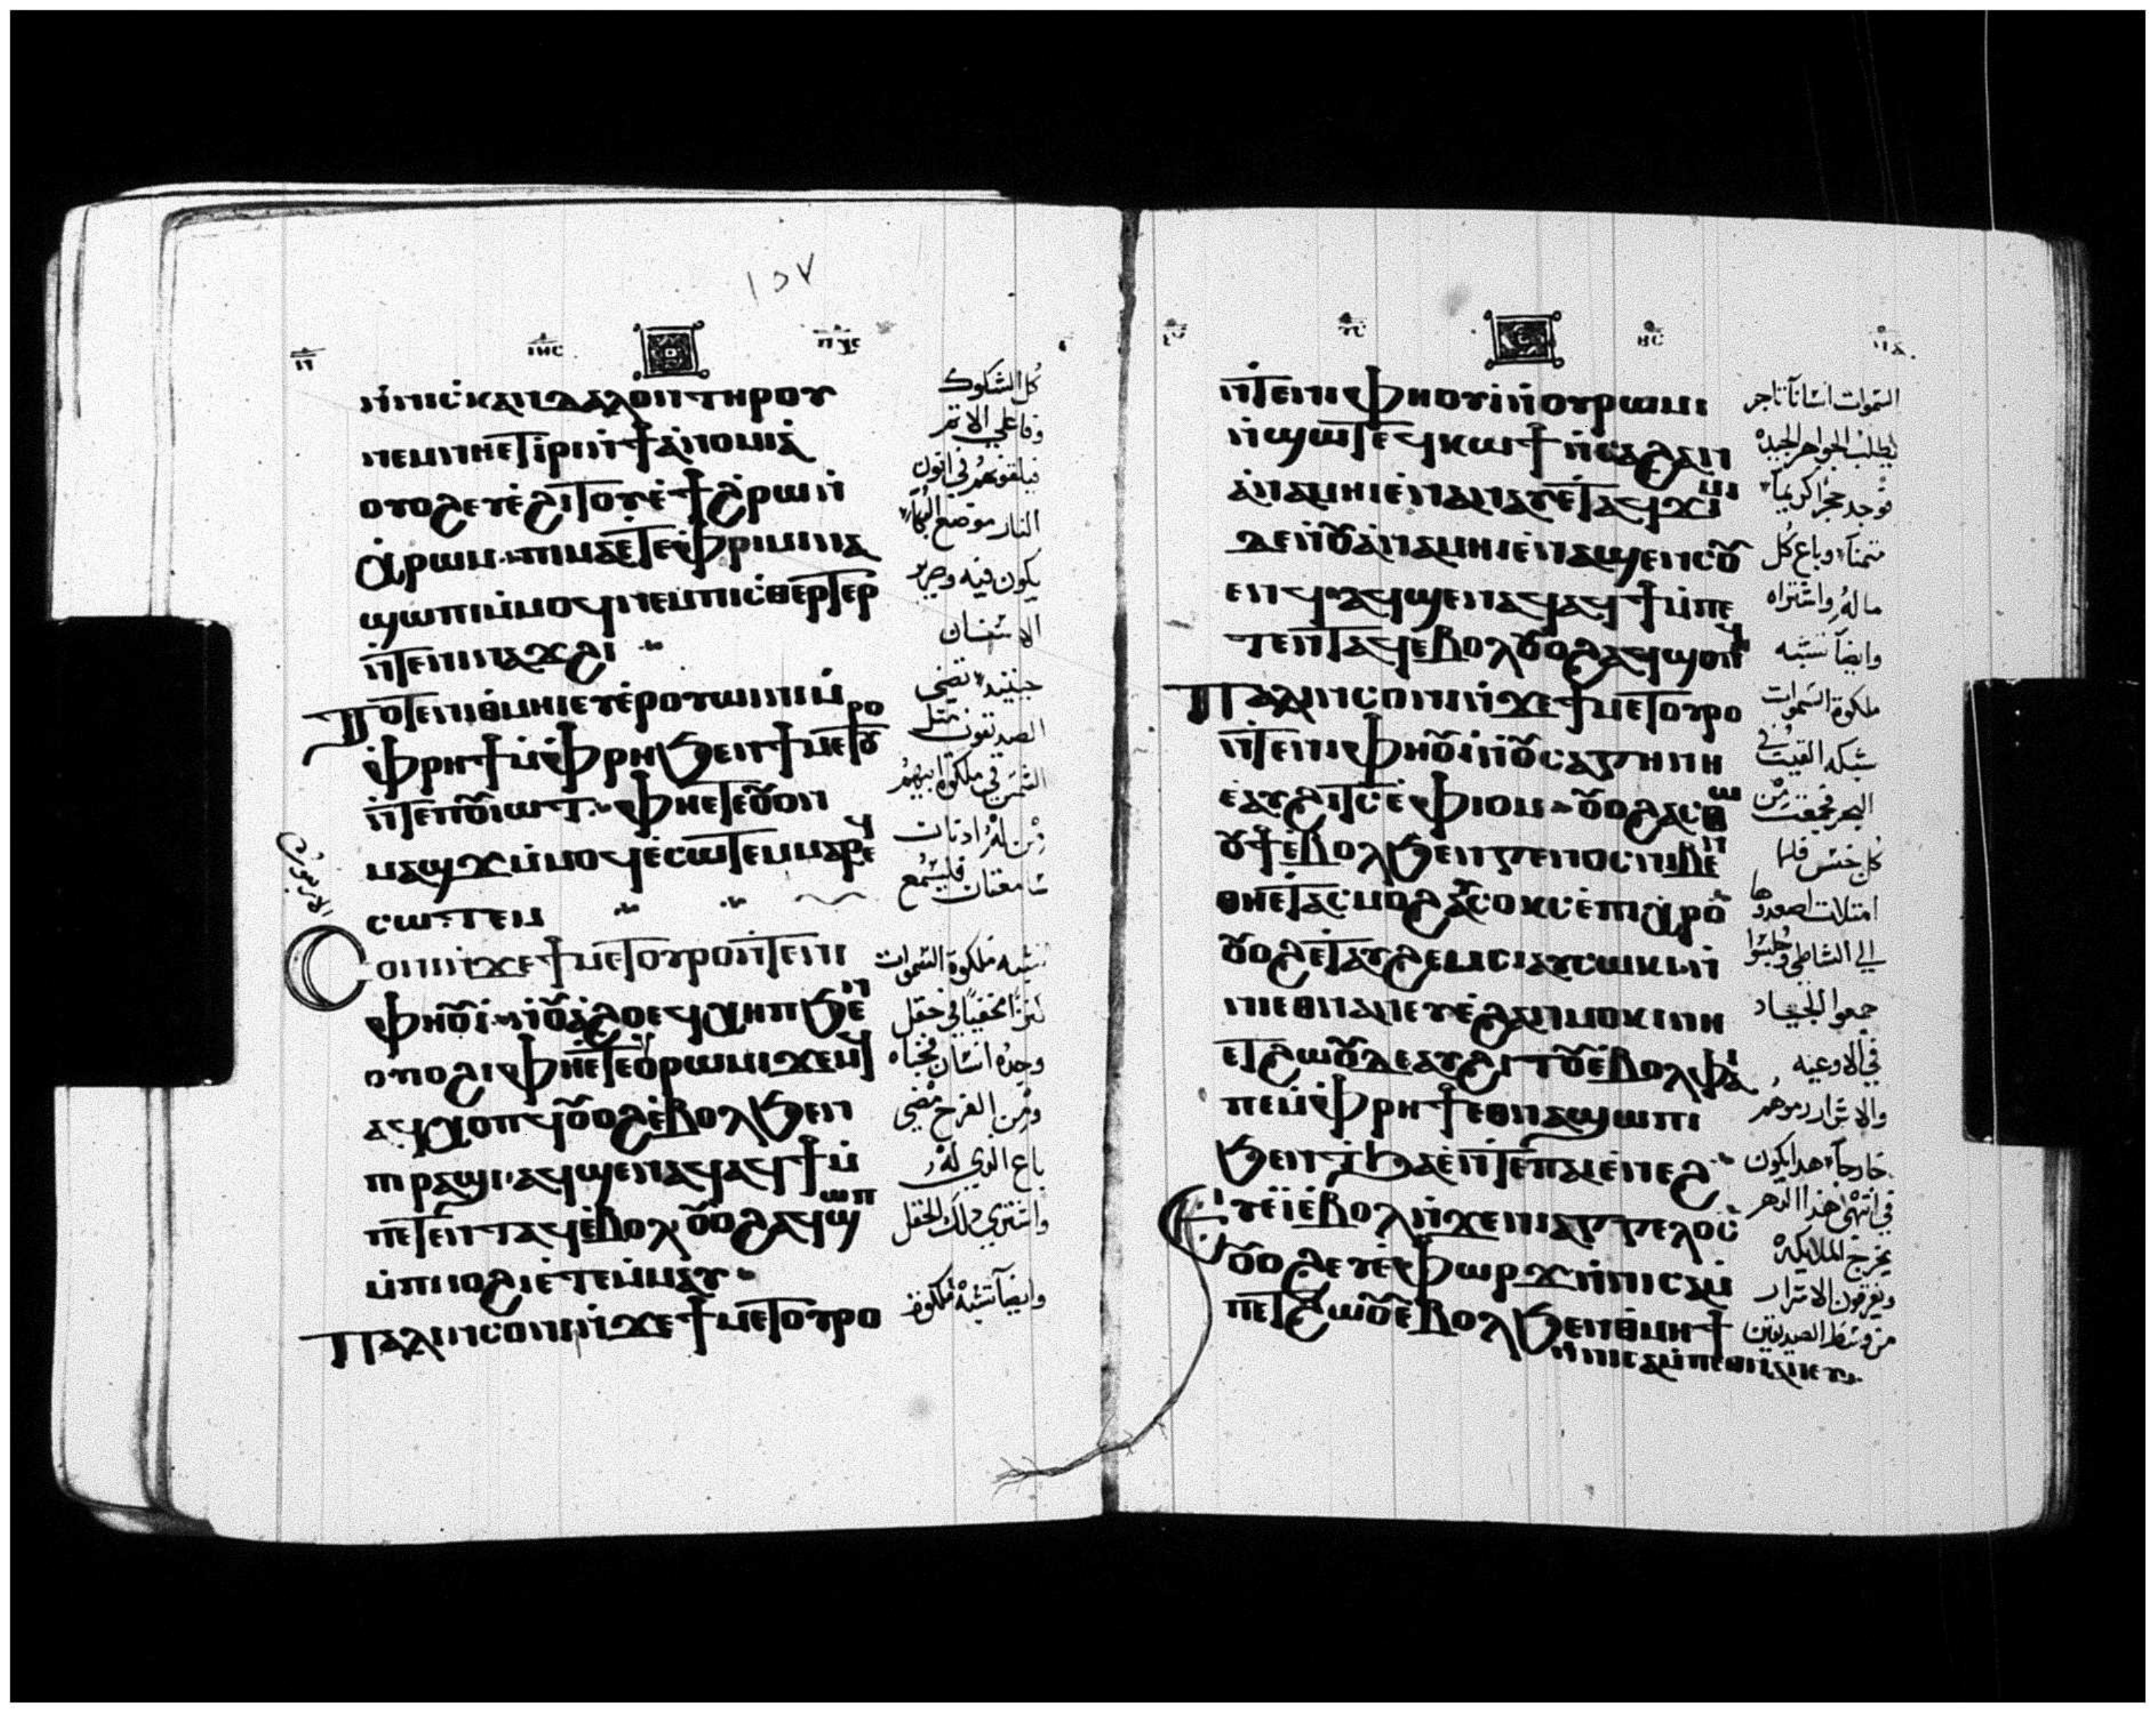 ١٥٧
ⲓⲏⲥ
ⲡⲭⲥ
ⲛ̀ⲛⲓⲥ̀ⲕⲁⲛⲇⲁⲗⲟⲛ ⲧⲏⲣⲟⲩ
ⲛⲉⲙ ⲛⲏ ⲉⲧⲓ̀ⲣⲓ ⲛ̀ϯⲁ̀ⲛⲟⲙⲓⲁ̀
ⲟⲩⲟϩ ⲉⲩⲉ̀ϩⲓⲧⲟⲩ ⲉ̀ϯϩ̀ⲣⲱ ⲛ̀
ⲭ̀ⲣⲱⲙ ⲡⲓⲙⲁ ⲉ̀ⲧⲉ ⲫ̀ⲣⲓⲙⲓ ⲛⲁ
ϣⲱⲡⲓ ⲙ̀ⲙⲟϥ ⲛⲉⲙ ⲡⲓⲥ̀ⲑⲉⲣⲧⲉⲣ
ⲛ̀ⲧⲉ ⲛⲓⲛⲁϫϩⲓ
Ⲧⲟⲧⲉ ⲛⲓⲑ̀ⲙⲏⲓ ⲉⲩⲉ̀ⲉⲣⲟⲩⲱⲓⲛⲓ
ⲙ̀ⲫ̀ⲣⲏϯ ⲙ̀ⲫ̀ⲣⲏ ϧⲉⲛ ϯⲙⲉⲧⲟⲩⲣⲟ
ⲛ̀ⲧⲉ ⲡⲟⲩⲓⲱⲧ ⲫⲏ ⲉⲧⲉ ⲟⲩⲟⲛ
ⲙⲁϣϫ ⲙ̀ⲙⲟϥ ⲉ̀ⲥⲱⲧⲉⲙ ⲙⲁⲣⲉϥ
ⲥⲱⲧⲉⲙ
Ⲥⲟⲛⲓ ⲛ̀ϫⲉ ϯⲙⲉⲧⲟⲩⲣⲟ ⲛ̀ⲧⲉ ⲛⲓ
ⲫⲏⲟⲩⲓ̀ ⲛ̀ⲟⲩⲁ̀ϩⲟ ⲉϥⲭⲏⲡ ϧⲉⲛ
ⲟⲩⲓⲟϩⲓ ⲫⲏ ⲉ̀ⲧⲉ ⲟⲩⲣⲱⲙⲓ ϫⲉⲙϥ
ⲁϥⲭⲟⲡϥ ⲟⲩⲟϩ ⲉ̀ⲃⲟⲗ ϧⲉⲛ
ⲡⲓⲣⲁϣⲓ ⲁϥϣⲉⲛⲁϥ ⲁϥϯ ⲙ̀
ⲡⲉⲧⲉⲛⲧⲁϥ ⲉ̀ⲃⲟⲗ ⲟⲩⲟϩ ⲁϥϣⲱⲡ
ⲙ̀ⲡⲓⲓⲟϩⲓ ⲉ̀ⲧⲉⲙ̀ⲙⲁⲩ
Ⲡⲁⲗⲓⲛ ⲥⲟⲛⲓ ⲛ̀ϫⲉ ϯⲙⲉⲧⲟⲩⲣⲟ
كل الشكوك
وفاعلي الاتم
فيلقونهم في اتون
النار موضع البكاء
يكون فيه وصرير
الاسنان
حينيد تضي
الصديقون مثل
الشمس في ملكوة ابيهم
من له ادنان
سامعتان فليسمع
تشبه ملكوة السموات
كنزًا مخفيًا في حقل
وجده انسان فخباه
ومن الفرح مضي
باع الدي له
واشتري دلك الحقل
وايضاً تشبه ملكوة
ⲛ̀ⲧⲉ ⲛⲓⲫⲏⲟⲩⲓ̀ ⲛ̀ⲟⲩⲣⲱⲙⲓ
ⲛ̀ϣⲱⲧ ⲉϥⲕⲱϯ ⲛ̀ⲥⲁ ϩⲁⲛ
ⲁ̀ⲛⲁⲙⲏⲓ ⲉ̀ⲛⲁⲛⲉⲩ ⲉ̀ⲧⲁϥϫⲓⲙⲓ
ⲇⲉ ⲛ̀ⲟⲩⲁ̀ⲛⲁⲙⲏⲓ ⲉ̀ⲛⲁϣⲉⲛⲥⲟⲩ
ⲉⲛϥ ⲁϥϣⲉⲛⲁϥ ⲁϥϯ ⲙ̀ⲡⲉ
ⲧⲉⲛⲧⲁϥ ⲉ̀ⲃⲟⲗ ⲟⲩⲟϩ ⲁϥϣⲟⲡϥ
Ⲡⲁⲗⲓⲛ ⲥⲟⲛⲓ ⲛ̀ϫⲉ ϯⲙⲉⲧⲟⲩⲣⲟ
ⲛ̀ⲧⲉ ⲛⲓⲫⲏⲟⲩⲓ̀ ⲛ̀ⲟⲩⲥⲁⲅⲏⲛⲏ
ⲉ̀ⲁⲩϩⲓⲧⲥ ⲉ̀ⲫⲓⲟⲙ ⲟⲩⲟϩ ⲁⲥⲑⲱ
ⲟⲩϯ ⲉ̀ⲃⲟⲗ ϧⲉⲛ ⲅⲉⲛⲟⲥ ⲛⲓⲃⲉⲛ
ⲑⲏ ⲉ̀ⲧⲁⲥⲙⲟϩ ⲁⲩⲥⲟⲕⲥ ⲉ̀ⲡⲓⲭ̀ⲣⲟ
ⲟⲩⲟϩ ⲉ̀ⲧⲁⲩϩⲉⲙⲥⲓ ⲁⲩⲥⲱⲕⲓ ⲛ̀
ⲛⲓⲉⲑⲛⲁⲛⲉⲩ ⲉ̀ϩⲁⲛⲙⲟⲕⲓ ⲛⲏ
ⲉⲧϩⲱⲟⲩ ⲇⲉ ⲁⲩϩⲓⲧⲟⲩ ⲉ̀ⲃⲟⲗ ⲫⲁⲓ
ⲡⲉ ⲙ̀ⲫ̀ⲣⲏϯ ⲉⲑⲛⲁϣⲱⲡⲓ
ϧⲉⲛ ⲧ̀ϧⲁⲉ̀ ⲛ̀ⲧⲉ ⲡⲁⲓⲉ̀ⲛⲉϩ
Ⲉⲩⲉ̀ⲓ̀ ⲉ̀ⲃⲟⲗ ⲛ̀ϫⲉ ⲛⲓⲁⲅⲅⲉⲗⲟⲥ
ⲟⲩⲟϩ ⲉⲩⲉ̀ⲫⲱⲣϫ ⲛ̀ⲛⲓⲥⲁⲙ̀
ⲡⲉⲧϩⲱⲟⲩ ⲉ̀ⲃⲟⲗ ϧⲉⲛ ⲑ̀ⲙⲏϯ
ⲛ̀ⲛⲓⲥⲁⲙ̀ⲡⲉⲑⲛⲁⲛⲉⲩ
السموات انساناً تاجر
يطلب الجواهر الجيده
فوجد حجراً كريماً
متمناً وباع كل
ماله واشتراه
وايضاً تشبه
ملكوة السموات
شبكه القيت في
البحر فجمعت من
كل جنس فلما
امتلات اصعدوها
الي الشاطي وجلسوا
جمعوا الجياد
في الاوعيه
والاشرار رموهم
خارجاً هدا يكون
في انتهي هذا الدهر
يخرج الملايكه
ويفرقون الاشرار
من وسط الصديقين